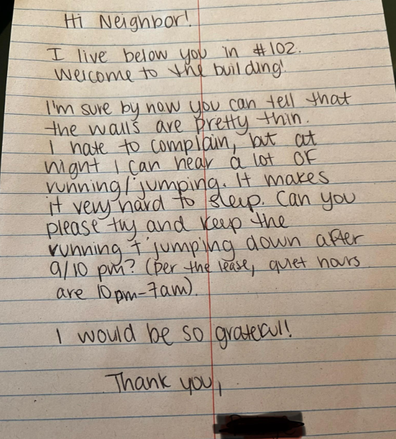 Hi Neighbor!
I live below you in #102.
Welcome to the building!
I'm sure by now you can tell that
the walls are pretty thin.
I hate to complain, but at
night I can hear a lot of
running/jumping. It makes
it very hard to sleep. Can you
please try and keep the
running + jumping down after
9/10 pm? (Per the lease, quiet hours
are 10pm-7am).
I would be so grateful!
Thank you,